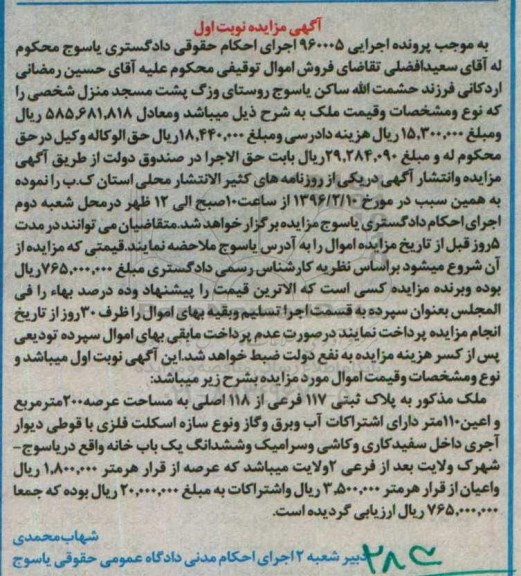 آگهی مزایده نوبت اول
به موجب پرونده اجرایی ۹۶۰۰۰۵ اجرای احکام حقوقی دادگستری یاسوج محکوم
له آقای سعیدافضلی تقاضای فروش اموال توقیفی محکوم علیه آقای حسین رمضانی
اردکانی فرزند حشمت الله ساکن یاسوج روستای وزگ پشت مسجد منزل شخصی را
که نوع ومشخصات وقیمت ملک به شرح ذیل میباشد ومعادل ۵۸۵,۶۸۱,۸۱۸ ریال
ومبلغ ۱۵,۳۰۰,۰۰۰ ریال هزینه دادرسی ومبلغ ۱۸,۴۴۰,۰۰۰ریال حق الوکاله وکیل درحق
محکوم له و مبلغ ۲۹,۲۸۴,۰۹۰ریال بابت حق الاجرا در صندوق دولت از طریق آگهی
مزایده وانتشار آگهی دریکی از روزنامه های کثیر الانتشار محلی استان ک.ب را نموده
به همین سبب در مورخ ۱۳۹۶/۲/۱۰ از ساعت۱۰صبح الی ۱۲ ظهر درمحل شعبه دوم
اجرای احکام دادگستری یاسوج مزایده برگزار خواهد شد.متقاضیان می توانند در مدت
۵روز قبل از تاریخ مزایده اموال را به آدرس یاسوج ملاحضه نمایند.قیمتی که مزایده از
آن شروع میشود براساس نظریه کارشناس رسمی دادگستری مبلغ ۷۶۵,۰۰۰,۰۰۰ریال
بوده وبرنده مزایده کسی است که الاترین قیمت را پیشنهاد وده درصد بهاء را فی
المجلس بعنوان سپرده به قسمت اجرا تسلیم وبقیه بهای اموال را ظرف ۳۰روز از تاریخ
انجام مزایده پرداخت نمایند درصورت عدم پرداخت مابقی بهای اموال سپرده تودیعی
پس از کسر هزینه مزایده به نفع دولت ضبط خواهد شد.این آگهی نوبت اول میباشد و
نوع ومشخصات وقیمت اموال مورد مزایده بشرح زیر میباشد:
ملک مذکور به پلاک ثبتی ۱۱۷ فرعی از ۱۱۸ اصلی به مساحت عرصه۲۰۰مترمربع
و اعین۱۱۰متر دارای اشتراکات آب وبرق وگاز ونوع سازه اسکلت فلزی با قوطی دیوار
آجری داخل سفیدکاری وکاشی وسرامیک وششدانگ یک باب خانه واقع دریاسوج-
شهرک ولایت بعد از فرعی ۲ولایت میباشد که عرصه از قرار هرمتر ۱,۸۰۰,۰۰۰ ریال
واعیان از قرار هرمتر ۳,۵۰۰,۰۰۰ ریال واشتراکات به مبلغ ۲۰,۰۰۰,۰۰۰ ریال بوده که جمعا
۷۶۵,۰۰۰,۰۰۰ ریال ارزیابی گردیده است.
شهاب محمدی
دبیر شعبه ۲ اجرای احکام مدنی دادگاه عمومی حقوقی یاسوج